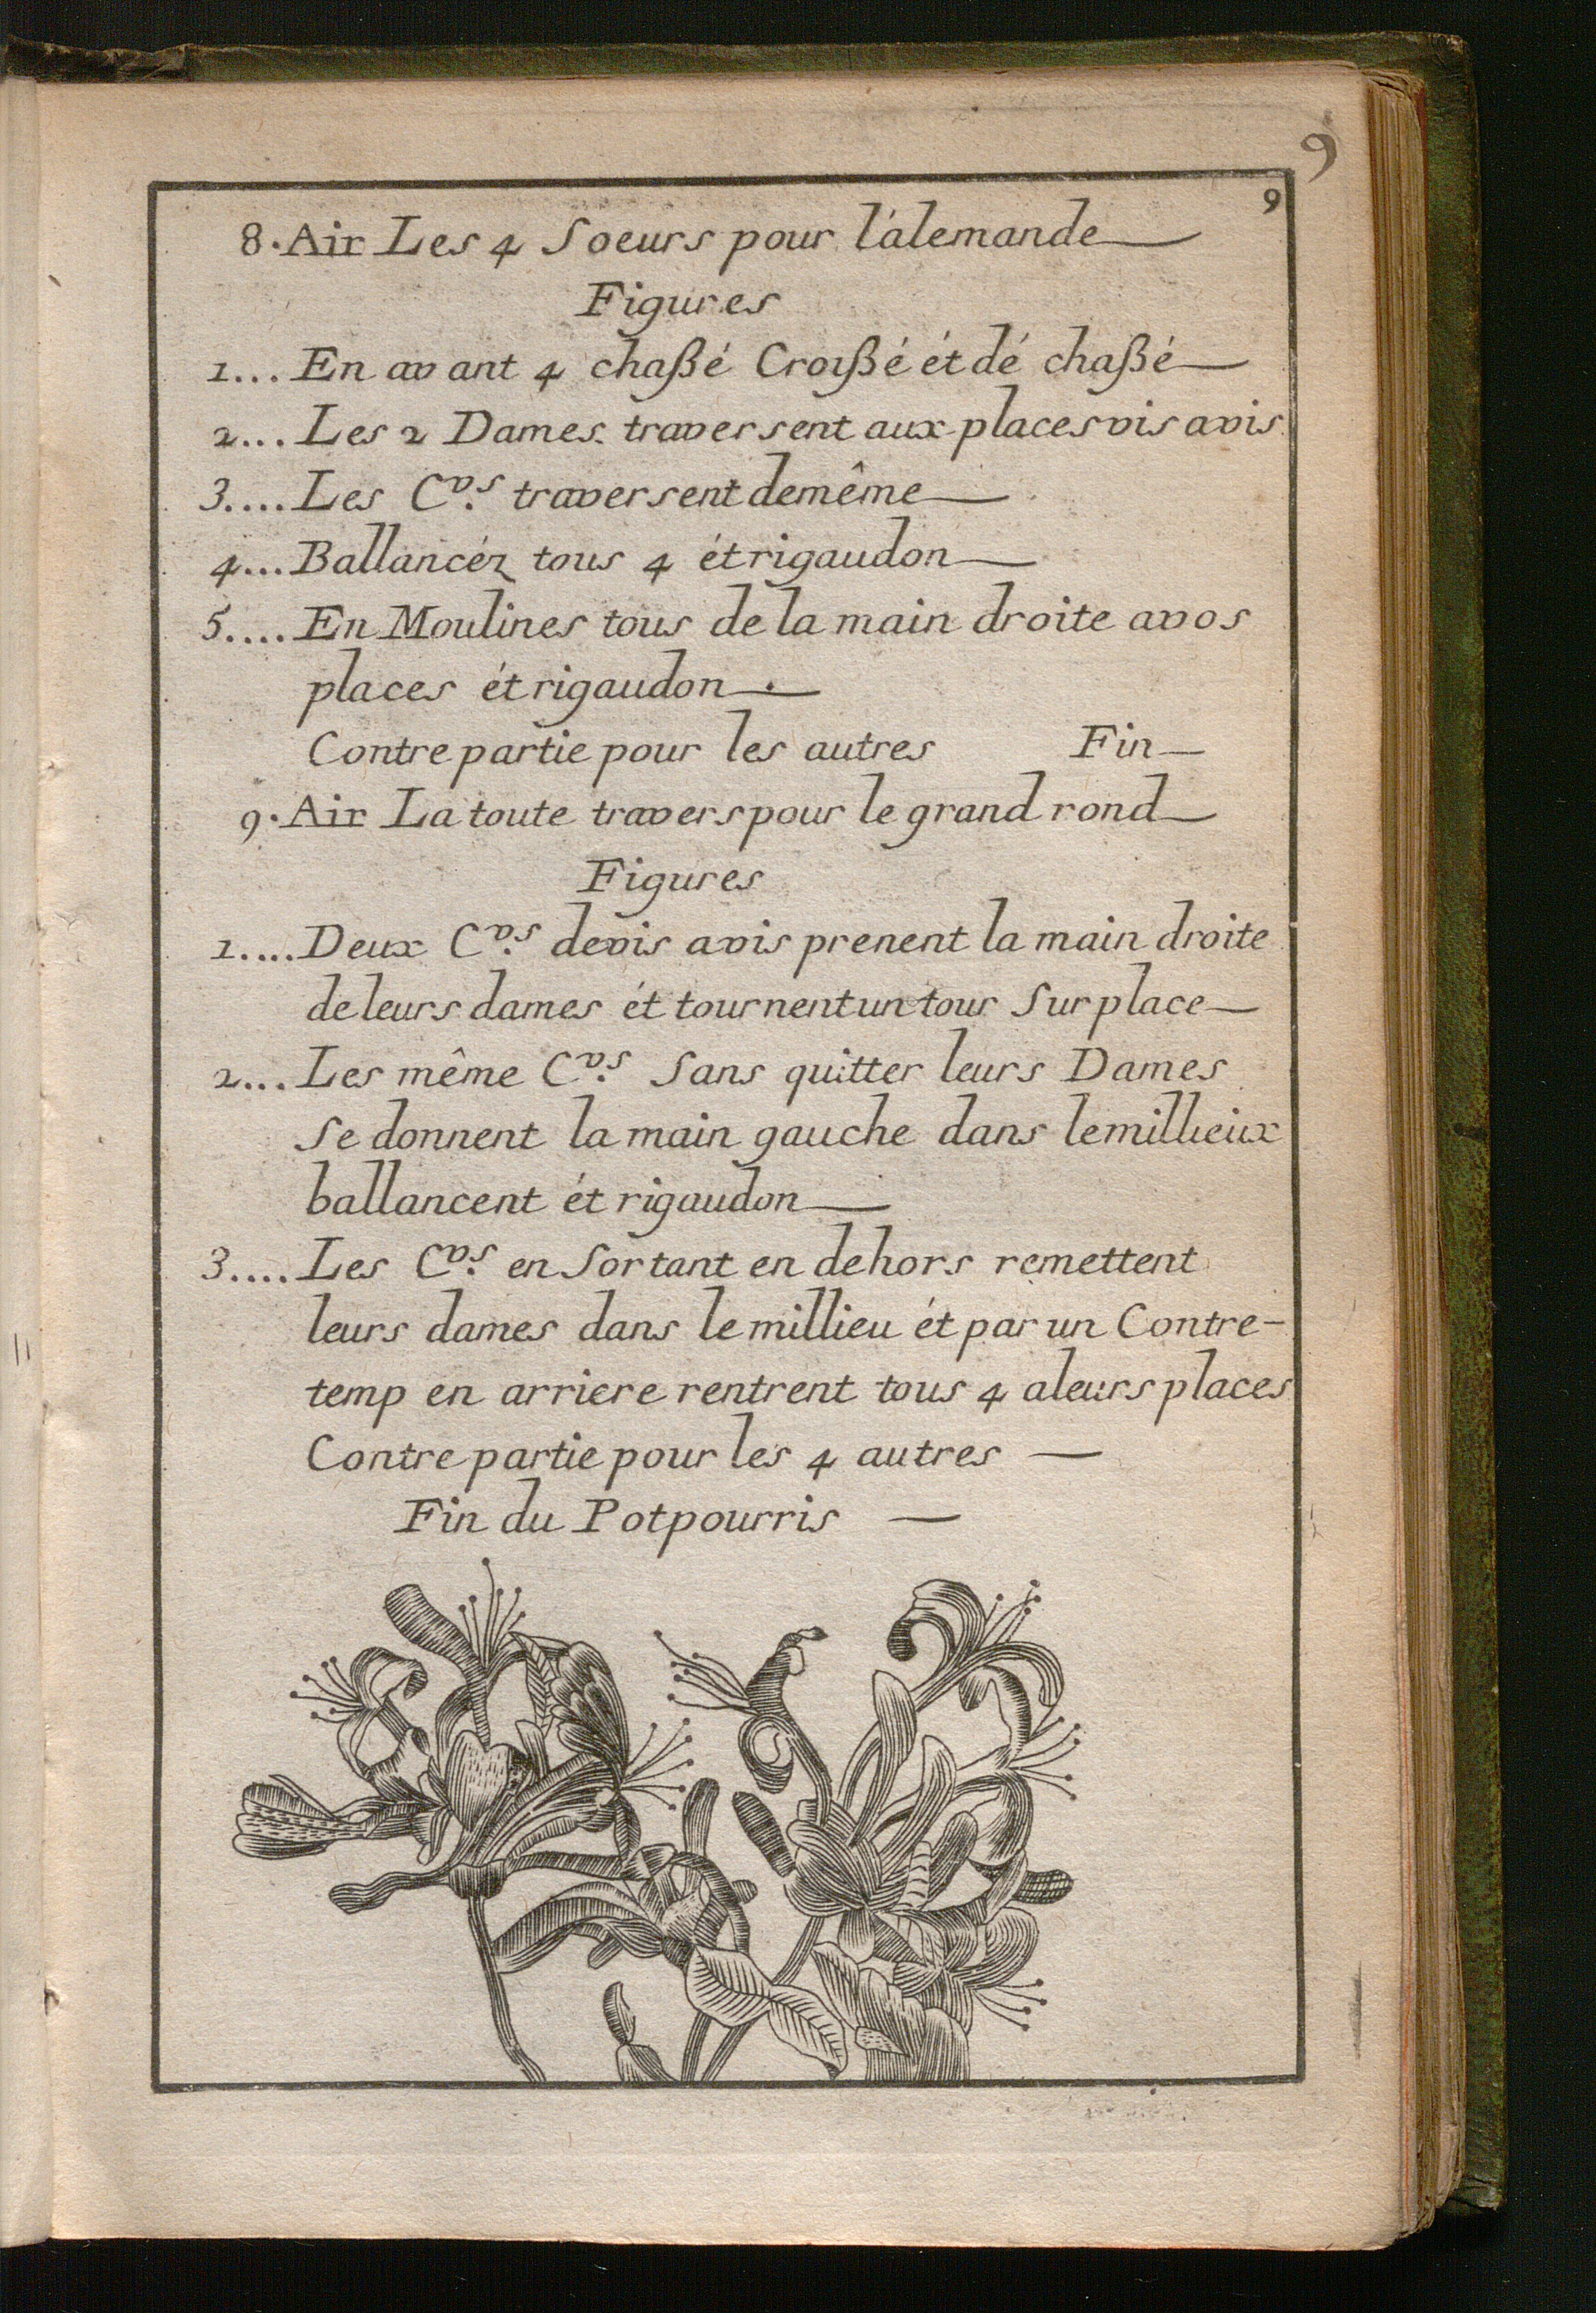 9
9
8. Air Les 4 Soeurs pour l'álemande
Figures
1... En avant 4 chaßé Croißé ét dé chaßé
2... Les 2 Dames traversent aux places vis avis
3.... Les Cv.s traversent demême
4... Ballancéz tous 4 ét rigaudon
5.... En Moulines tous de la main droite avos
places ét rigaudon
Contre partie pour les autres Fin
9. Air La toute travers pour le grand rond
Figures
1.... Deux Cv.s devis avis prenent la main droite
de leurs dames ét tournent un tour Sur place
2... Les même Cv.s Sans quitter leurs Dames
Se donnent la main gauche dans le millieux
ballancent ét rigaudon
3.... Les Cv.s en Sortant en dehors remettent
leurs dames dans le millieu ét par un Contre-
temp en arriere rentrent tous 4 aleurs places
Contre partie pour les 4 autres
Fin du Potpourris